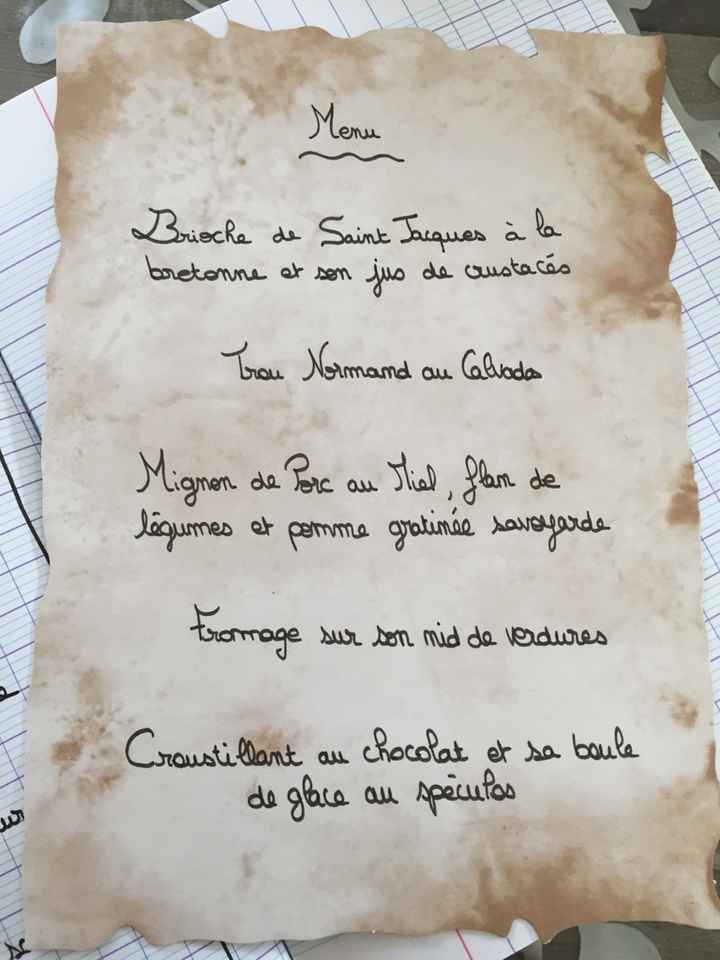 Menu
Brioche de Saint Jacques à la
bretonne et son jus de crustacés
Trou Normand au Calvados
Mignon de Porc au Miel, flan de
légumes et pomme gratinée savoyarde
Fromage sur son nid de verdures
Croustillant au chocolat et sa boule
de glace au spéculos